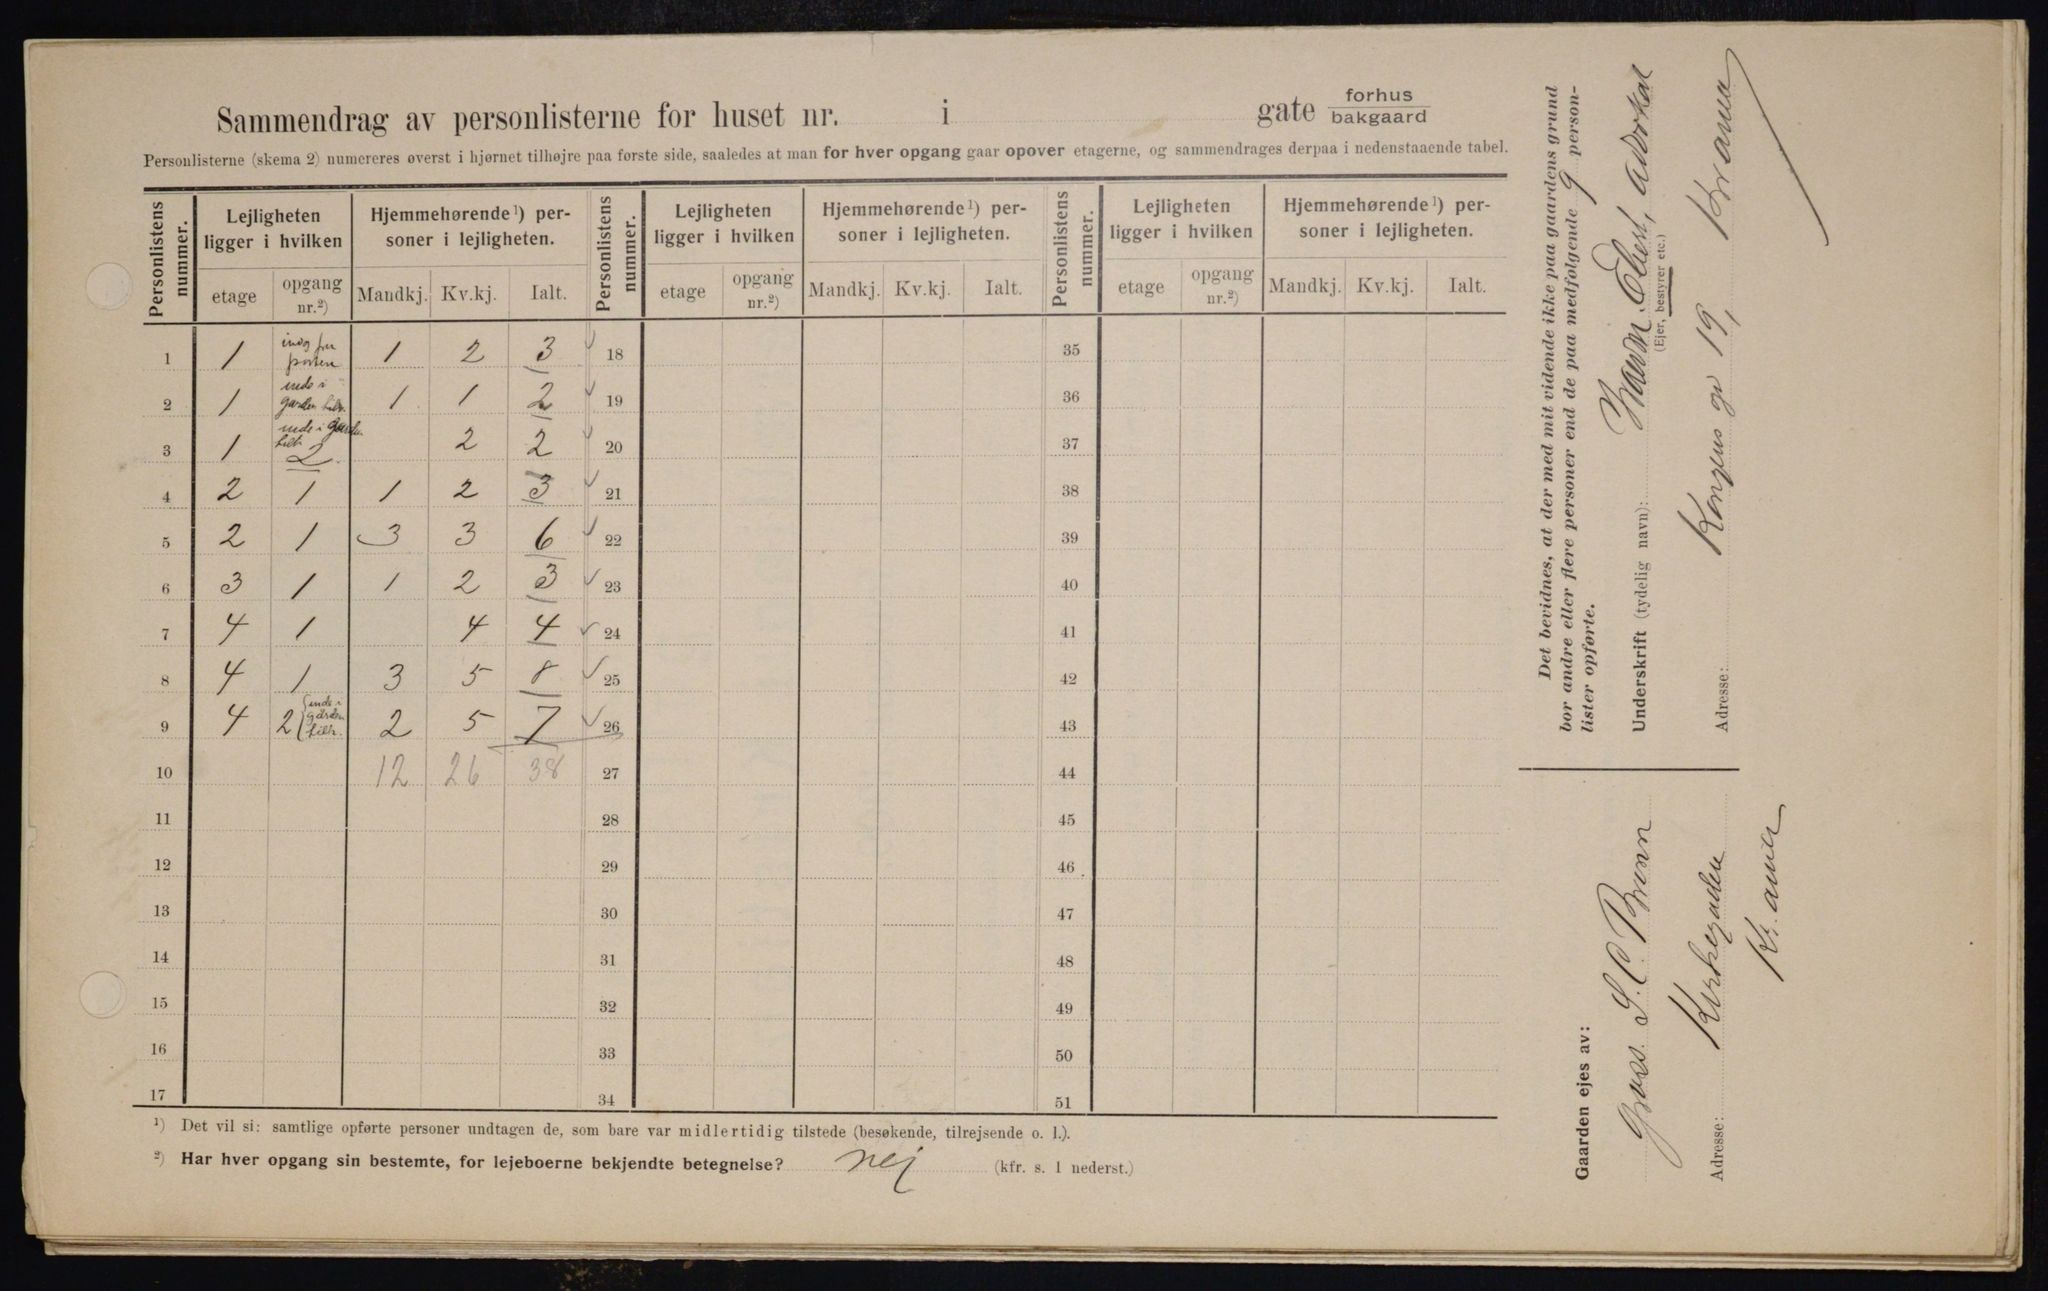 Sammendrag av personlisterne for huset nr. i gate forhus
bakgaard
Personlisterne (skema 2) numereres øverst i hjørnet tilhøjre paa første side, saaledes at man for hver opgang gaar opover etagerne, og sammendrages derpaa i nedenstaaende tabel.
Personlistens nummer. Lejligheten ligger i hvilken Hjemmehørende¹) personer i lejligheten. Personlistens nummer. Lejligheten ligger i hvilken Hjemmehørende¹) personer i lejligheten. Personlistens nummer. Lejligheten ligger i hvilken Hjemmehørende¹) personer i lejligheten.
etage opgang nr.²) Mandkj. Kv.kj. Ialt. etage opgang nr.²) Mandkj. Kv.kj. Ialt. etage opgang nr.²) Mandkj. Kv.kj. Ialt.
1 1 indg fra porten 1 2 3 18 35
2 1 inde i garden 1 1 2 19 36
3 1 inde i garden 2 2 2 20 37
4 2 1 1 2 3 21 38
5 2 1 3 3 6 22 39
6 3 1 1 2 3 23 40
7 4 1 4 4 24 41
8 4 1 3 5 8 25 42
9 4 2 inde i gården 2 5 7 26 43
10 12 26 38 27 44
11 28 45
12 29 46
13 30 47
14 31 48
15 32 49
16 33 50
17 34 51
¹) Det vil si: samtlige opførte personer undtagen de, som bare var midlertidig tilstede (besøkende, tilrejsende o. l.).
²) Har hver opgang sin bestemte, for lejeboerne bekjendte betegnelse? nej (kfr. s. 1 nederst.)
Det bevidnes, at der med mit vidende ikke paa gaardens grund
bor andre eller flere personer end de paa medfølgende 9 person-
lister opførte.
Underskrift (tydelig navn): Elieson, advokat
(Ejer, bestyrer etc.)
Adresse: Kongens gt 19, Krania
Gaarden ejes av:
Gross. S. C. Brunn
Adresse: Kirkegaden
Kr.ania